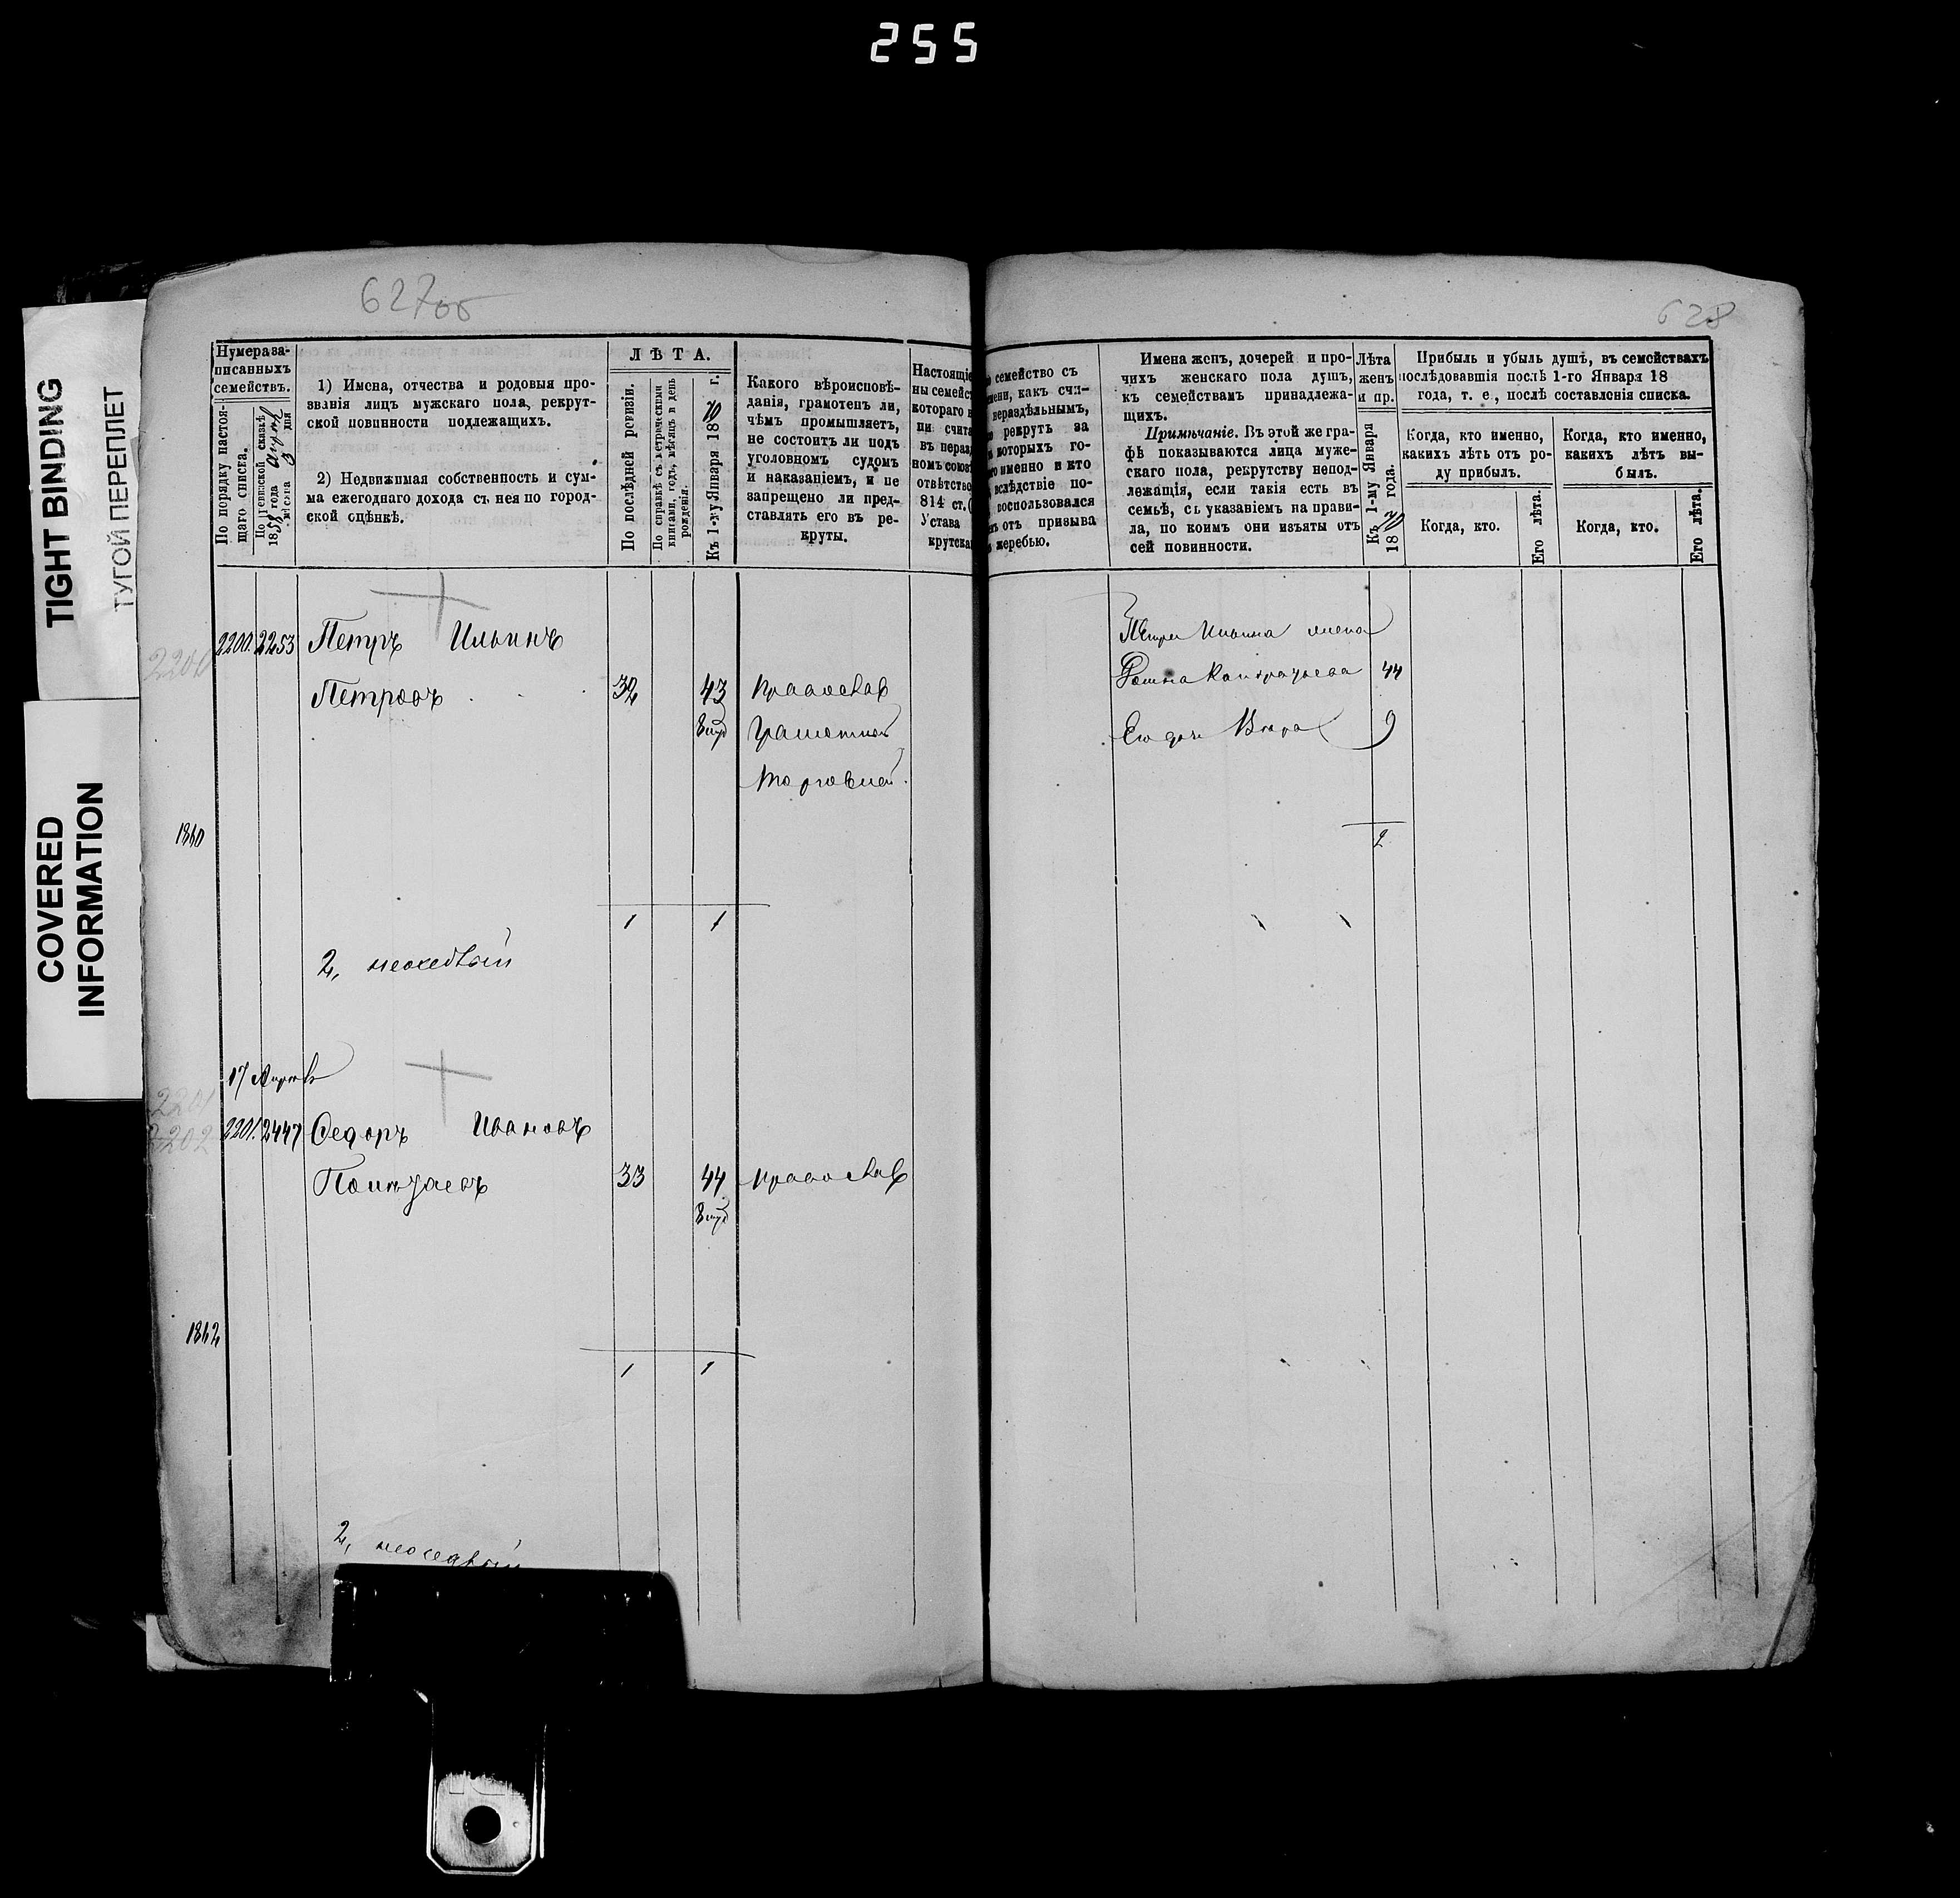 255
TIGHT BINDING
ТУГОЙ ПЕРЕПЛЕТ
COVERED
INFORMATION
627об
628
Нумера за-
писанныхъ
семействъ.
По порядку настоя-
щаго списка.
По ревизской сказкѣ
1858 года
мѣсяца дня
1) Имена, отчества и родовыя про-
званія лицъ мужскаго пола, рекрут-
ской повинности подлежащихъ.
2) Недвижимая собственность и сум-
ма ежегоднаго дохода съ нея по город-
ской оцѣнкѣ.
ЛѢТА.
По послѣдней ревизіи.
По справкѣ съ метрическими
книгами, годъ, мѣсяцъ и день
рожденія.
Къ 1-му Января 1870 г.
Какого вѣроисповѣ-
данія, грамотенъ ли,
чѣмъ промышляетъ,
не состоитъ ли подъ
уголовномъ судомъ
и наказаніемъ, и не
запрещено ли пред-
ставлять его въ ре-
круты.
Настоящіе
ны семейст
котораго в
ни счита
въ нераз
номъ союз
отвѣтство
814 ст. (
Устава
крутска
семейство съ
мени, какъ счи-
нераздѣльнымъ,
рекрутъ за
которыхъ го-
именно и кто
вслѣдствіе по-
воспользовался
отъ призыва
жеребью.
Имена женъ, дочерей и про-
чихъ женскаго пола душъ,
къ семействамъ принадлежа-
щихъ.
Примѣчаніе. Въ этой же гра-
фѣ показываются лица муже-
скаго пола, рекрутству непод-
лежащія, если такія есть въ
семьѣ, съ указаніемъ на прави-
ла, по коимъ они изъяты отъ
сей повинности.
Лѣта
женъ
и пр.
Къ 1-му Января
1870 года.
Прибыль и убыль душъ, въ семействахъ
послѣдовавшія послѣ 1-го Января 18
года, т. е., послѣ составленія списка.
Когда, кто именно,
какихъ лѣтъ отъ ро-
ду прибылъ.
Когда, кто.
Его лѣта.
Когда, кто именно,
какихъ лѣтъ вы-
былъ.
Когда, кто.
Его лѣта.
2200
2200. 2253 Петръ Ильинъ
Петровъ 32 43 православ
грамотный
торговлей.
Петра Ильина жена
Кондратьева 44
Его дочь Вѣра 9
1860
2
1 1
2, неоседлый
17 Апрѣля
2201
2202
2201. 2447 Федоръ Ивановъ
33 44 православ
1862
1 1
2, неоседлый